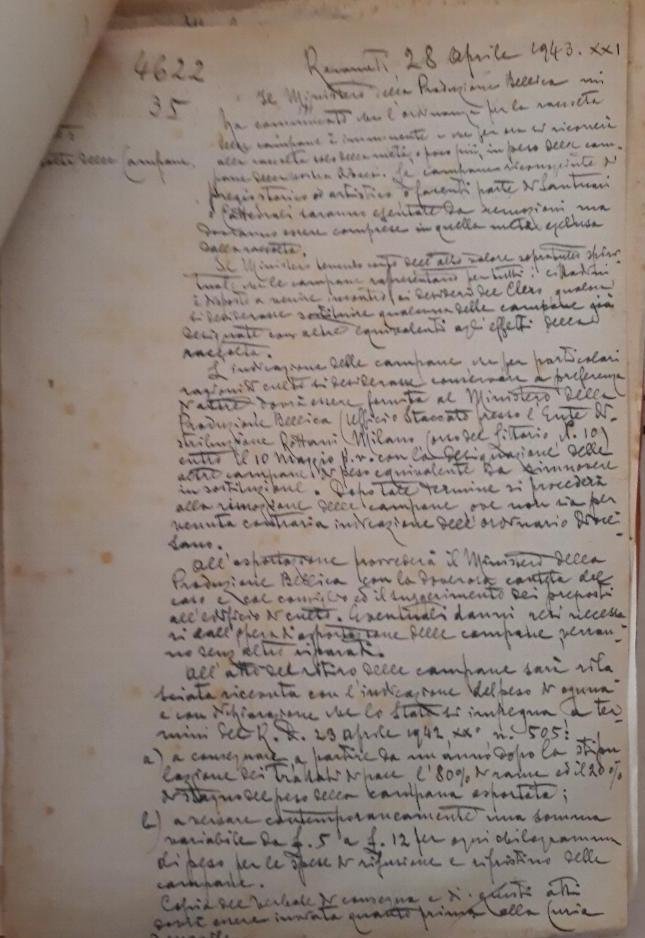 4622
35
Recanati, 28 Aprile 1943. XXI
Il Ministero della Produzione Bellica mi
ha comunicato che l'ordinanza per la raccolta
delle campane è imminente e che per ora si ricorrerà
alla raccolta solo della metà, o poco più, in peso delle cam-
pane della nostra diocesi. Le campane riconosciute di
pregio storico od artistico o facenti parte di Santuari
o Cattedrali saranno esentate da remozioni ma
dovranno essere comprese in quella metà esclusa
dalla raccolta.
Il Ministero tenendo conto dell'alto valore spiri-
tuale che le campane rappresentano per tutti i cittadini
è disposto a venire incontro ai desideri del Clero qualora
si desiderasse sostituire qualcuna delle campane già
designate con altre equivalenti agli effetti della
raccolta.
L'indicazione delle campane che per particolari
ragioni di culto si desiderasse conservare a preferenza
d'altre dovrà essere fornita al Ministero della
Produzione Bellica (Ufficio Staccato presso l'Ente Di-
stribuzione Rottami Milano Corso del Littorio, N. 10)
entro il 10 Maggio p.v. con la designazione delle
altre campane di peso equivalente da rimuovere
in sostituzione. Dopo tale termine si procederà
alla rimozione delle campane ove non sia per
venuta contraria indicazione dell'ordinario dioce-
sano.
All'asportazione provvederà il Ministero della
Produzione Bellica con la doverosa cautela del
caso e col consiglio ed il suggerimento dei preposti
all'edificio di culto. Eventuali danni resi necessa
ri dall'opera d'asportazione delle campane verran-
no senz'altro riparati.
All'atto del ritiro delle campane sarà rila
sciata ricevuta con l'indicazione del peso di ognuna
e con dichiarazione che lo Stato si impegna a ter-
mini del R. D. 23 Aprile 1942 XX° n. 505:
a) a consegnare a partire da un anno dopo la stipu
lazione dei trattati di pace l'80% di rame ed il 20%
di stagno del peso della campana asportata;
b) a versare contemporaneamente una somma
variabile da £. 5 a £. 12 per ogni chilogramma
di peso per le spese di rifusione e ripristino delle
campane.
Copia del verbale di consegna e di questi atti
dovrà essere inviata quanto prima alla Curia